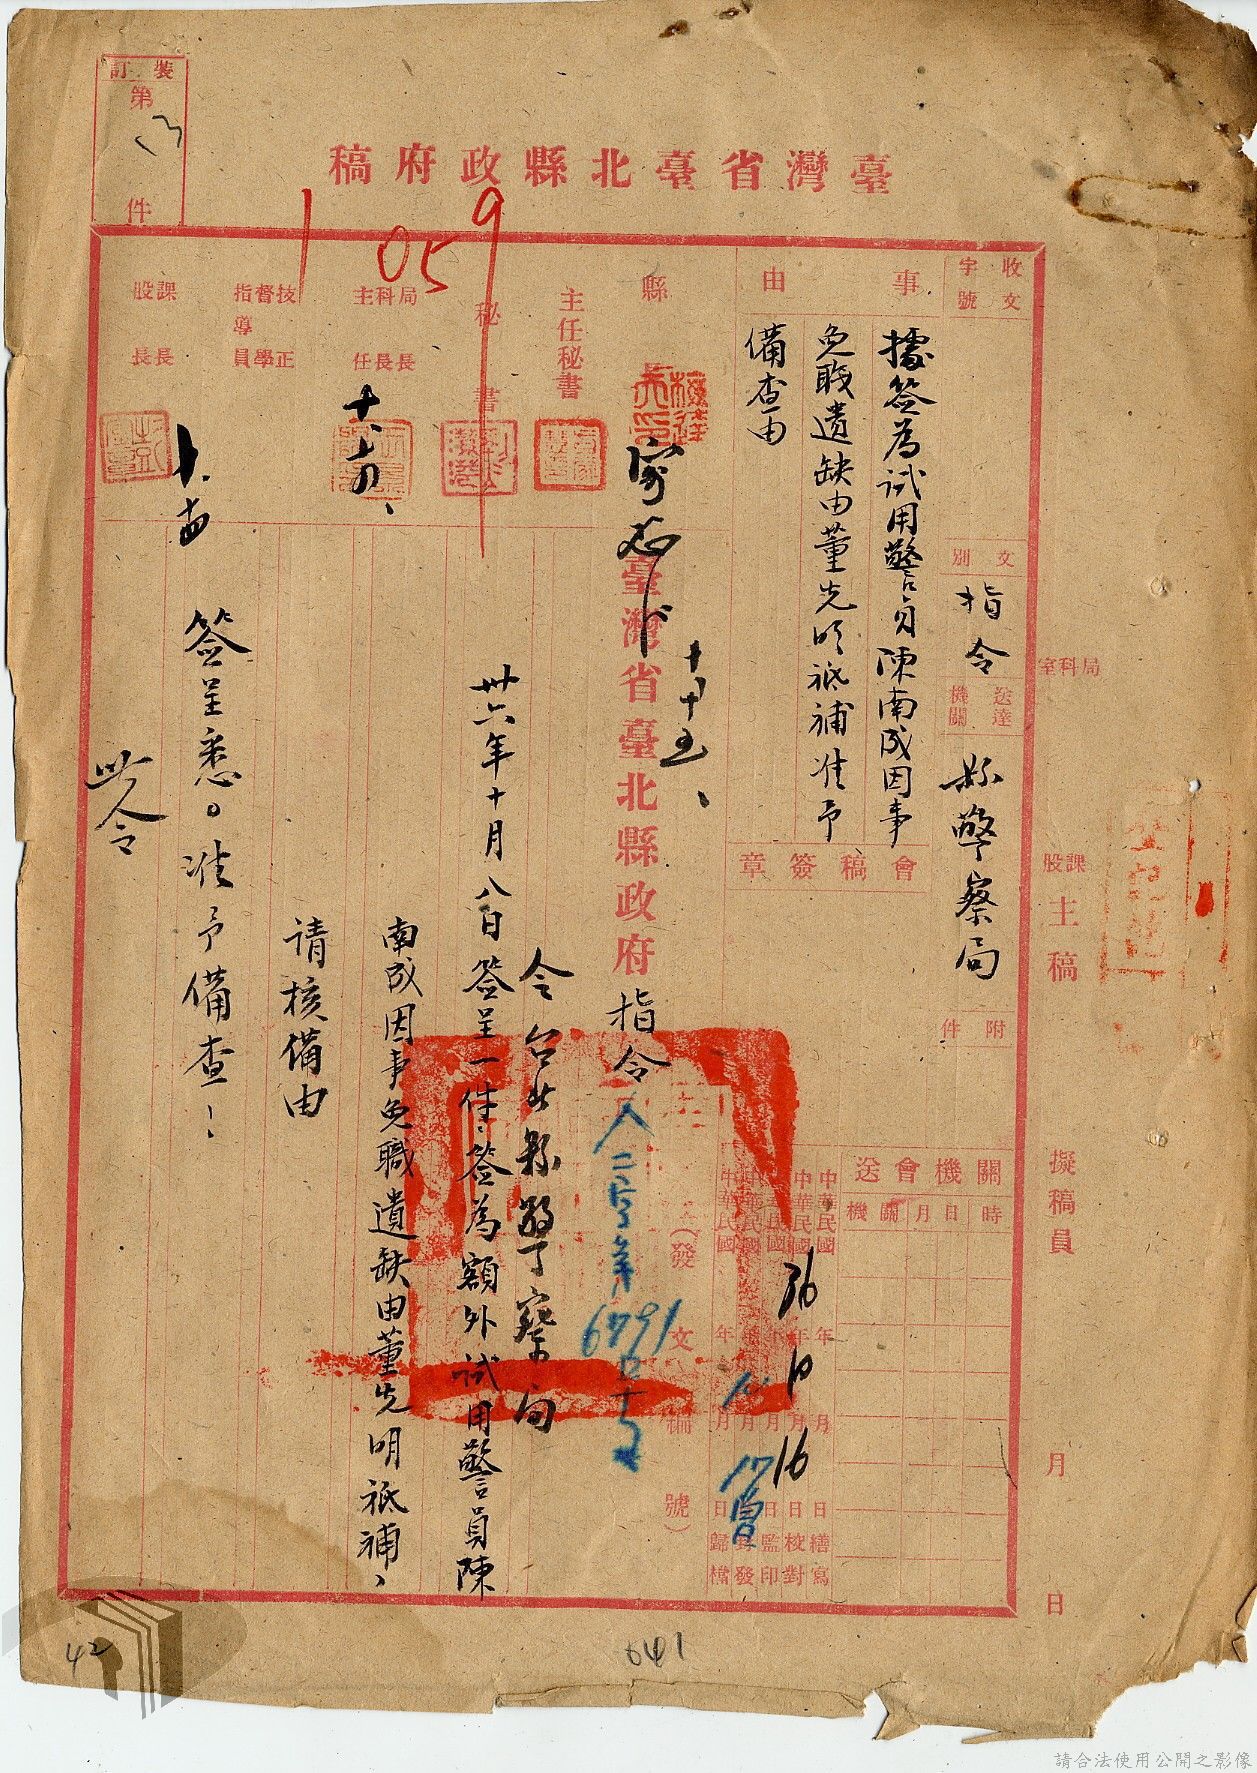 裝訂
第
件
臺灣省臺北縣政府稿
1059
收文
字號
事由
據簽為試用警員陳南成因事
免職遺缺由董先明祗補准予
備查由
文別
指令
送達機關
縣警察局
附件
會稿簽章
縣長
主任秘書
秘書
局科主
長長任
技督指
正學導員
課股
長長
局科室
課股
主稿
擬稿員
月
日
關機會送
時日月關機
中華民國36年10月16日繕寫
中華民國 年 月 日校對
中華民國 年 月 日監印
中華民國 年 月17日封發
中華民國 年 月 日歸檔
臺灣省臺北縣政府指令
(發文 編號)
6791
令台北縣警察局
卅六年十月八日簽呈一件、簽為額外試用警員陳
南成因事免職遺缺由董先明祗補、
請核備由
簽呈悉。准予備查、
此令
42
641
請合法使用公開之影像